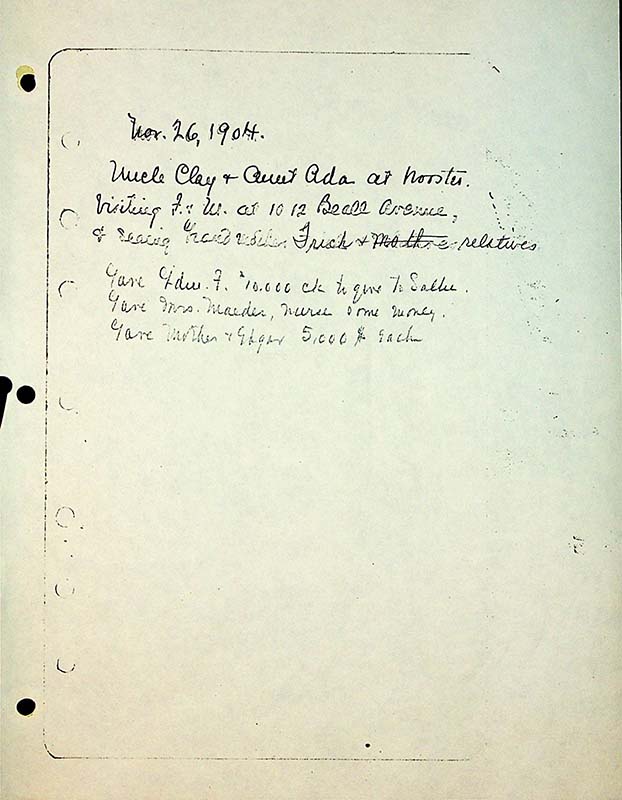 Nov. 26, 1904.
Uncle Clay & Aunt Ada at Wooster.
Visiting F. & W. at 1012 Beall Avenue,
& seeing Grandmother Frick & Mother relatives
Gave Edw. F. $10.000 ck to give to Sallie.
Gave Mrs. Maeder, nurse some money.
Gave Mother & Edgar 5,000 $ each